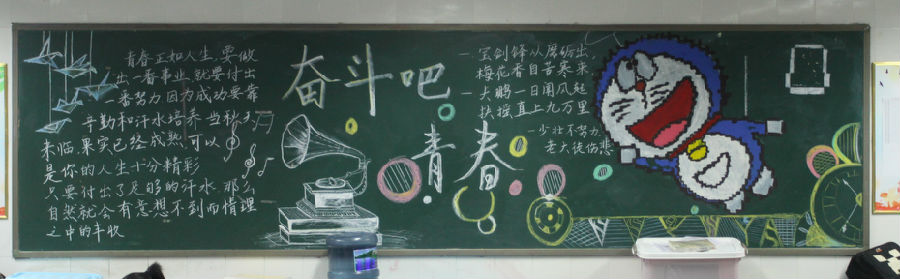 青春正如人生,要做
出一番事业,就要付出
一番努力因为成功要靠
辛勤和汗水培养.当秋天
来临.果实已经成熟,可以
是你的人生十分精彩
只要付出了足够的汗水.那么
自然就会有意想不到而情理
之中的丰收
奋斗吧
青春
一宝剑锋从磨砺出,
梅花香自苦寒来.
一大鹏一日同风起
扶摇直上九万里
一少壮不努力,
老大徒伤悲